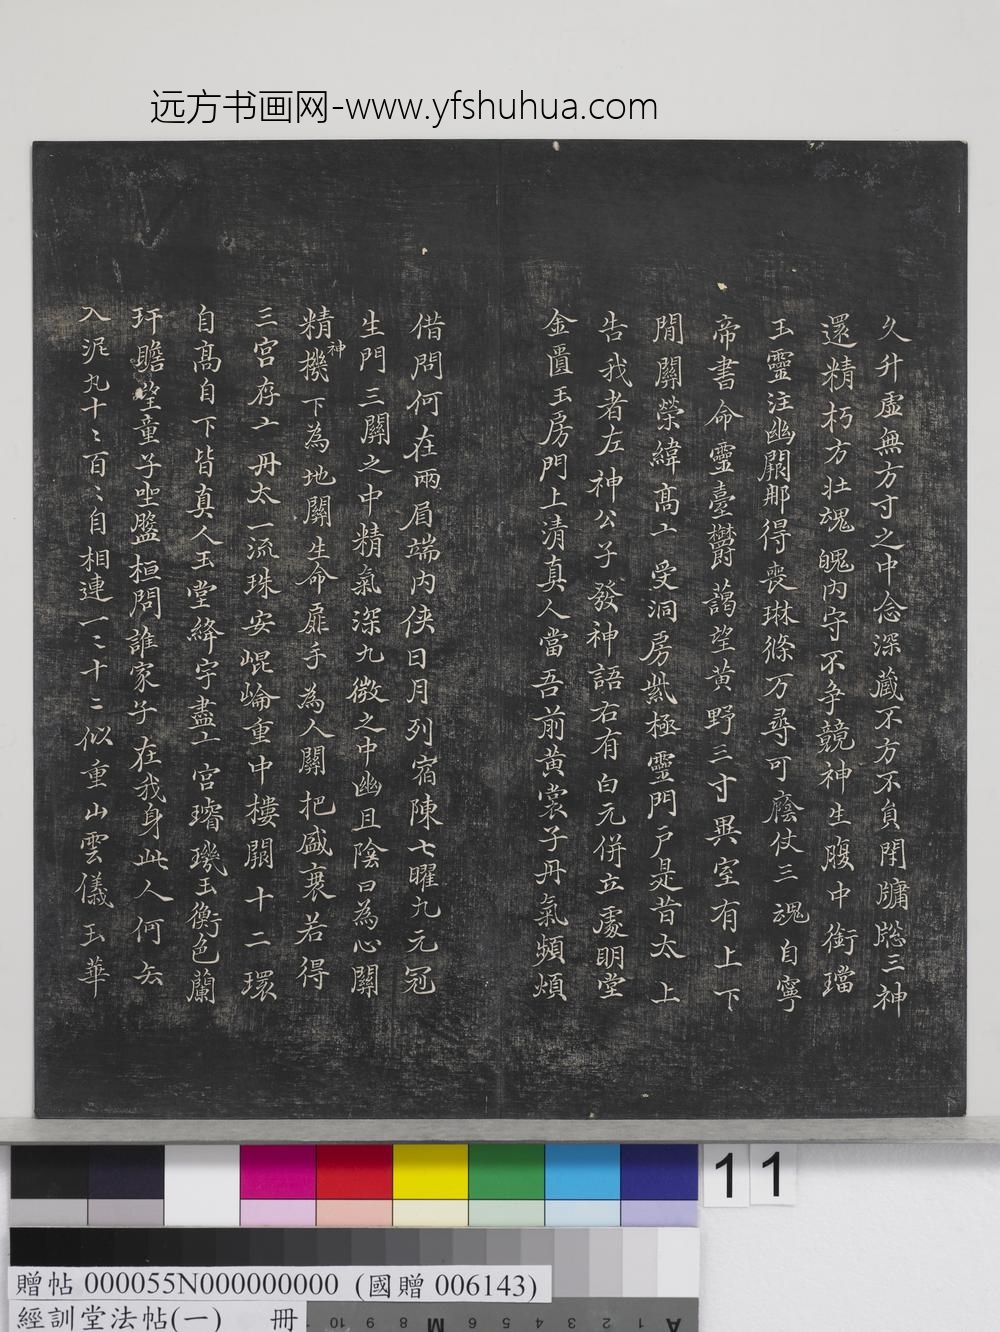 远方书画网-www.yfshuhua.com
久升虛無方寸之中念深藏不方不負閈牗䏶三神
還精朽方壮魂魄內守不争競神生腹中銜璫
玉靈注幽闕那得喪琳條万尋可廕仗三魂自寧
帝書命靈臺欝藹望黄野三寸異室有上下
閒關榮緯髙亠受洞房紫極靈門戸是昔太上
告我者左神公子發神語右有白元併立處明堂
金匱玉房門上清真人當吾前黄裳子丹氣頻煩
借問何在兩眉端内侠日月列宿陳七曜九元冠
生門三關之中精氣深九微之中幽且陰口為心關
精神機下為地關生命扉手為人關把盛衰若得
三宮存亠丹太一流珠安崐崘重中樓閣十二環
自髙自下皆真人玉堂絳宇盡亠宮璿璣玉衡色蘭
玕瞻望童子坐盤桓問誰家子在我身此人何去
入泥丸十〻百〻自相連一〻十二似重山雲儀玉華
11
贈帖 000055N000000000 (國贈 006143)
經訓堂法帖(一) 冊
A 1 2 3 4 5 6 M 8 9 10